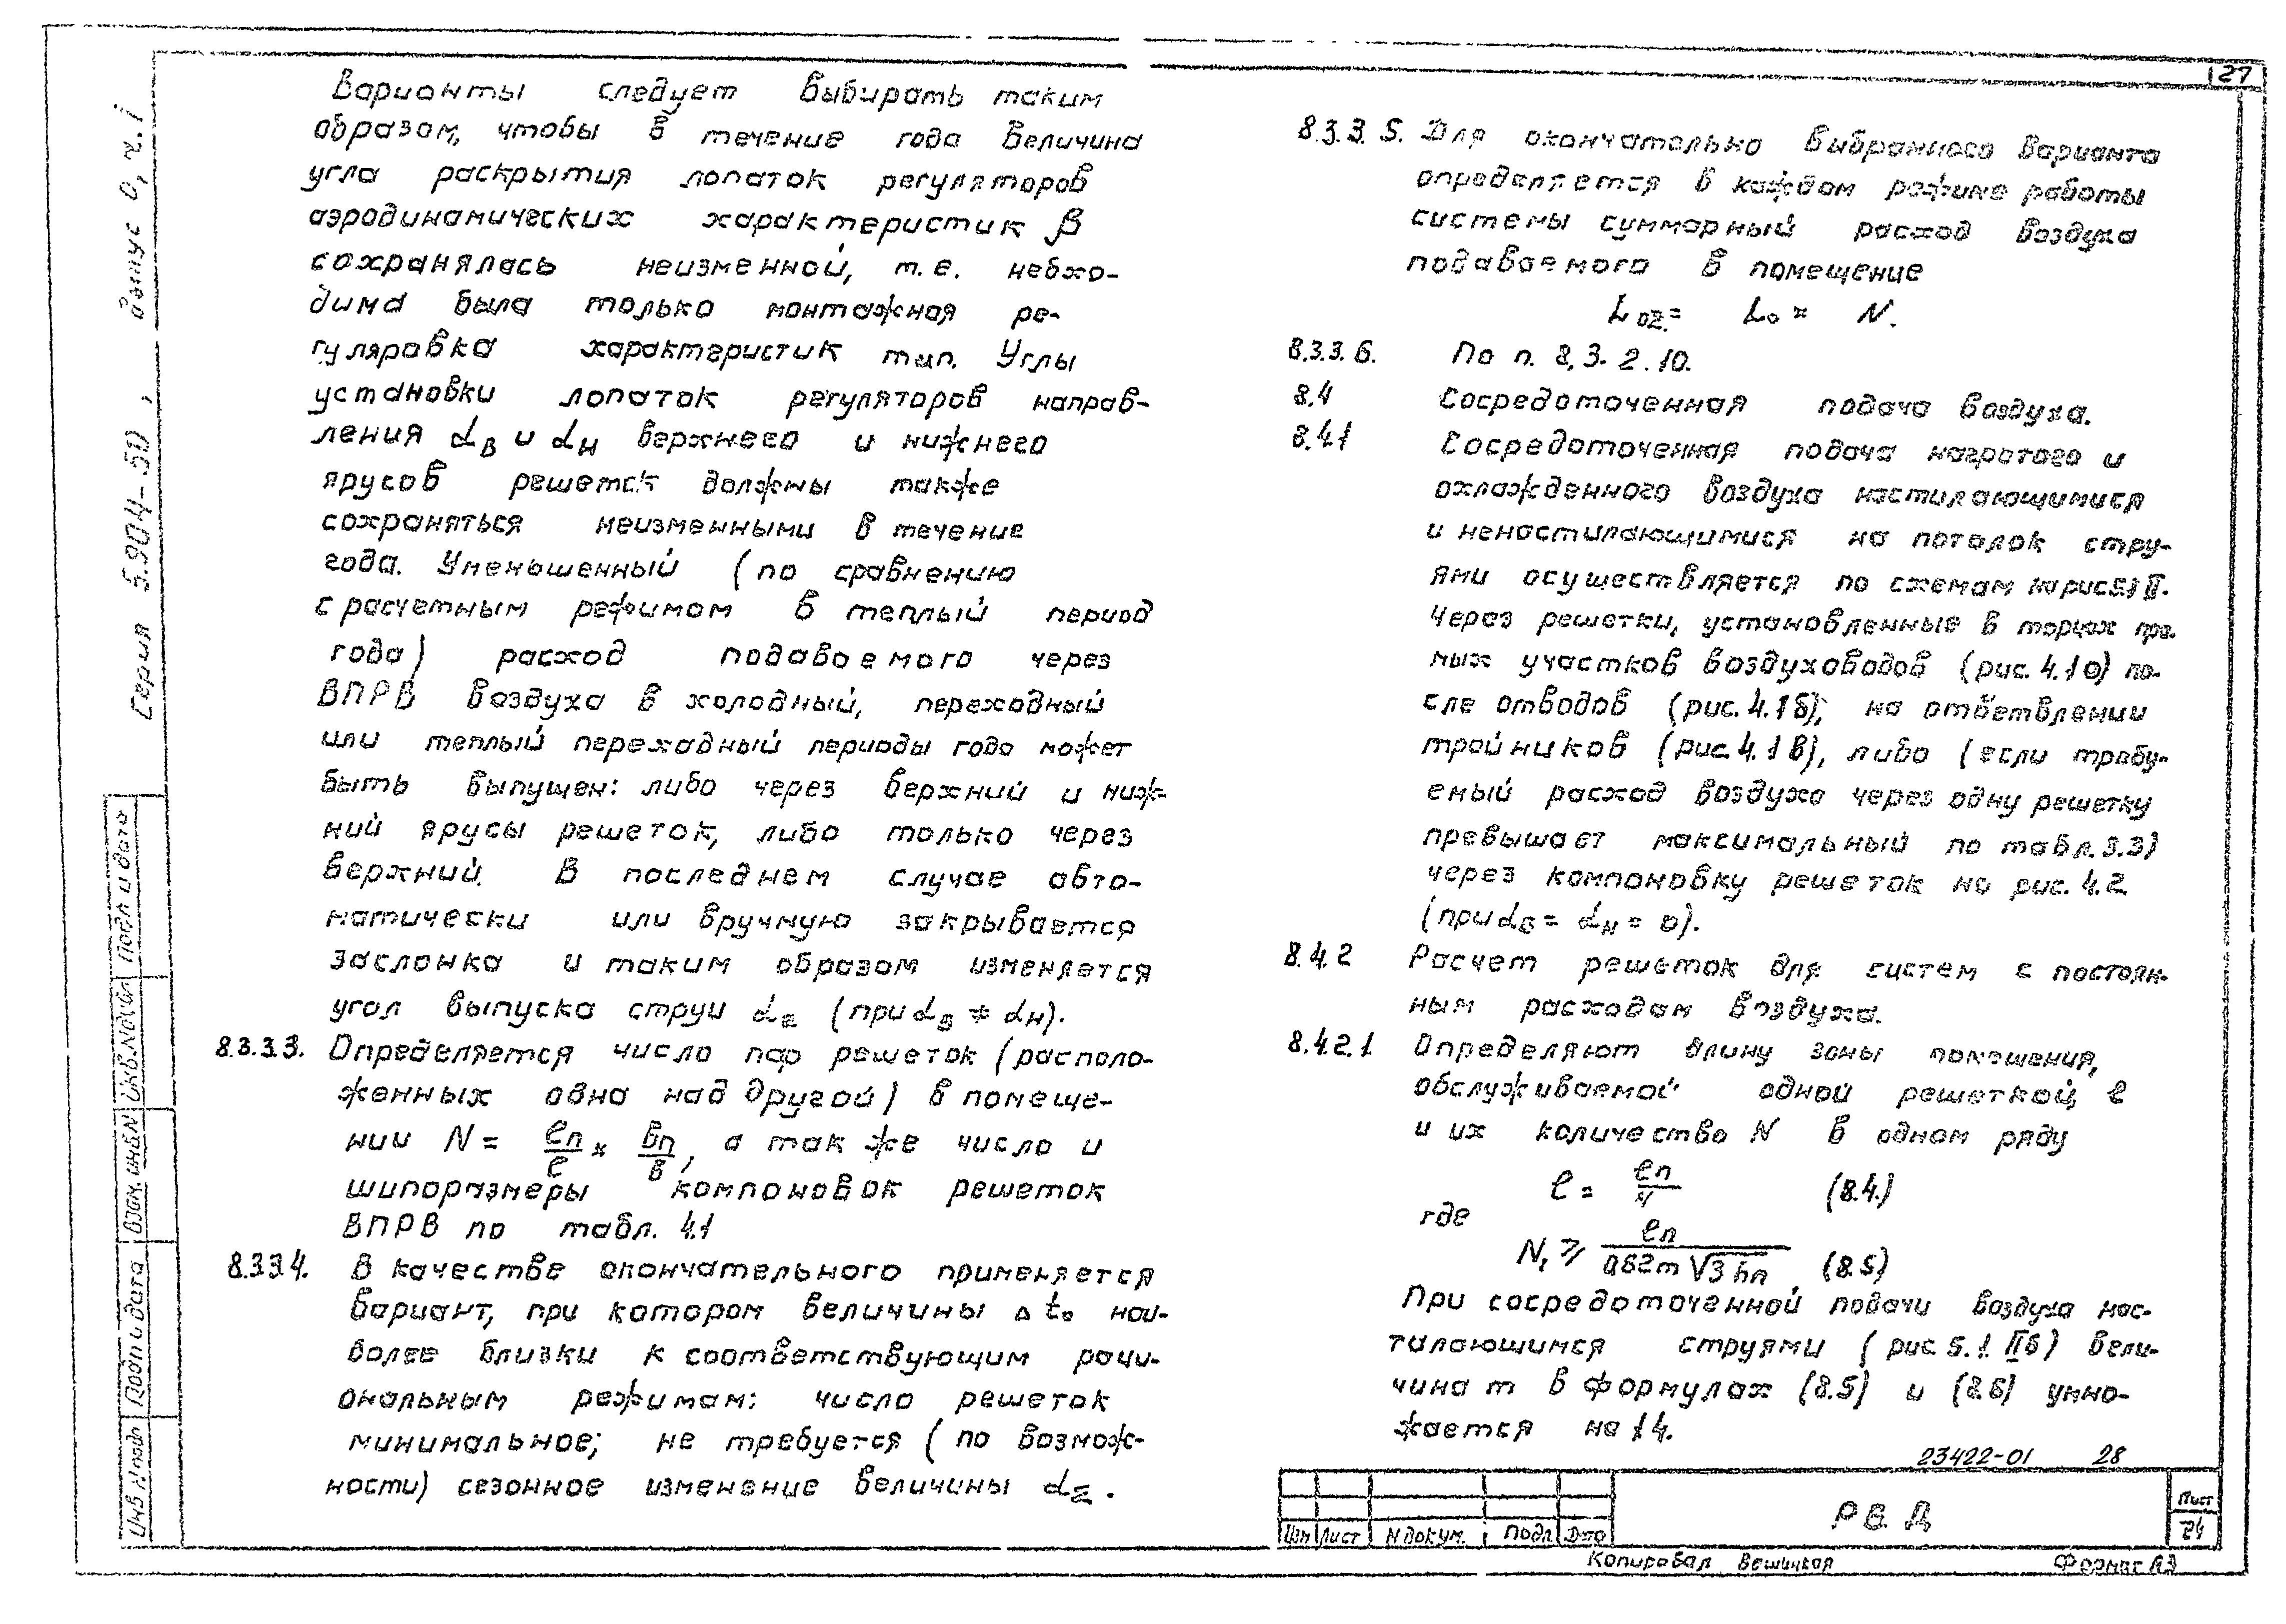 27
Варианты следует выбирать таким
образом, чтобы в течение года величина
угла раскрытия лопаток регуляторов
аэродинамических характеристик β
сохранялась неизменной, т.е. небхо-
дима была только монтажная ре-
гуляравка характеристик тип. Углы
установки лопаток регуляторов направ-
ления αв и αн верхнего и нижнего
ярусов решеток должны также
сохраняться неизменными в течение
года. Уменьшенный (по сравнению
с расчетным режимом в теплый период
года) расход подаваемого через
ВПРВ воздуха в холодный, переходный
или теплый переходный периоды года может
быть выпущен: либо через верхний и ниж-
ний ярусы решеток, либо только через
верхний. В последнем случае авто-
матически или вручную закрывается
заслонка и таким образом изменяется
угол выпуска струи αΣ (при αв ≠ αн).
8.3.3.3. Определяется число пар решеток (располо-
женных одна над другой) в помеще-
нии N = ℓп/ℓ × вп/в, а так же число и
шипоразмеры компоновок решеток
ВПРВ по табл. 4.1
8.3.3.4. В качестве окончательного применяется
вариант, при котором величины Δt₀ наи-
более близки к соответствующим раци-
ональным режимам: число решеток
минимальное; не требуется (по возмож-
ности) сезонное изменение величины αΣ.
8.3.3.5. Для окончательно выбранного варианта
определяется в каждом режиме работы
системы суммарный расход воздуха
подаваемого в помещение
L₀Σ = L₀ × N.
8.3.3.6. По п. 8.3.2.10.
8.4 Сосредоточенная подача воздуха.
8.4.1 Сосредоточенная подача нагретого и
охлажденного воздуха настилающимися
и ненастилающимися на потолок стру-
ями осуществляется по схемам на рис. 5.1 II.
Через решетки, установленные в торцах пря-
мых участков воздуховодов (рис. 4.1а) по-
сле отводов (рис. 4.1б); на ответвлении
тройников (рис. 4.1в), либо (если требу-
емый расход воздуха через одну решетку
превышает максимальный по табл. 3.3)
через компоновку решеток на рис. 4.2
(при αв = αн = 0).
8.4.2 Расчет решеток для систем с постоян-
ным расходам воздуха.
8.4.2.1 Определяют длину зоны помещения,
обслуживаемой одной решеткой, ℓ
и их количество N в одном ряду
ℓ = ℓп/N (8.4.)
где
N, ≥ ℓп/0,62m√3hп (8.5)
При сосредоточенной подачи воздуха нас-
тилающимся струями (рис 5.1. IIб) вели-
чина m в формулах (8.5) и (8.6) умно-
жается на 1.4.
23422-01 28
РВ. Д
Лист
24
Изм Лист N докум. Подп. Дата
Копировал Вешицкая Формат А3
Серия 5.904-50, выпус 0, ч. 1
Подп и дата
Инв.N дубл
Взам. инв N
Подп и дата
Инв N подл